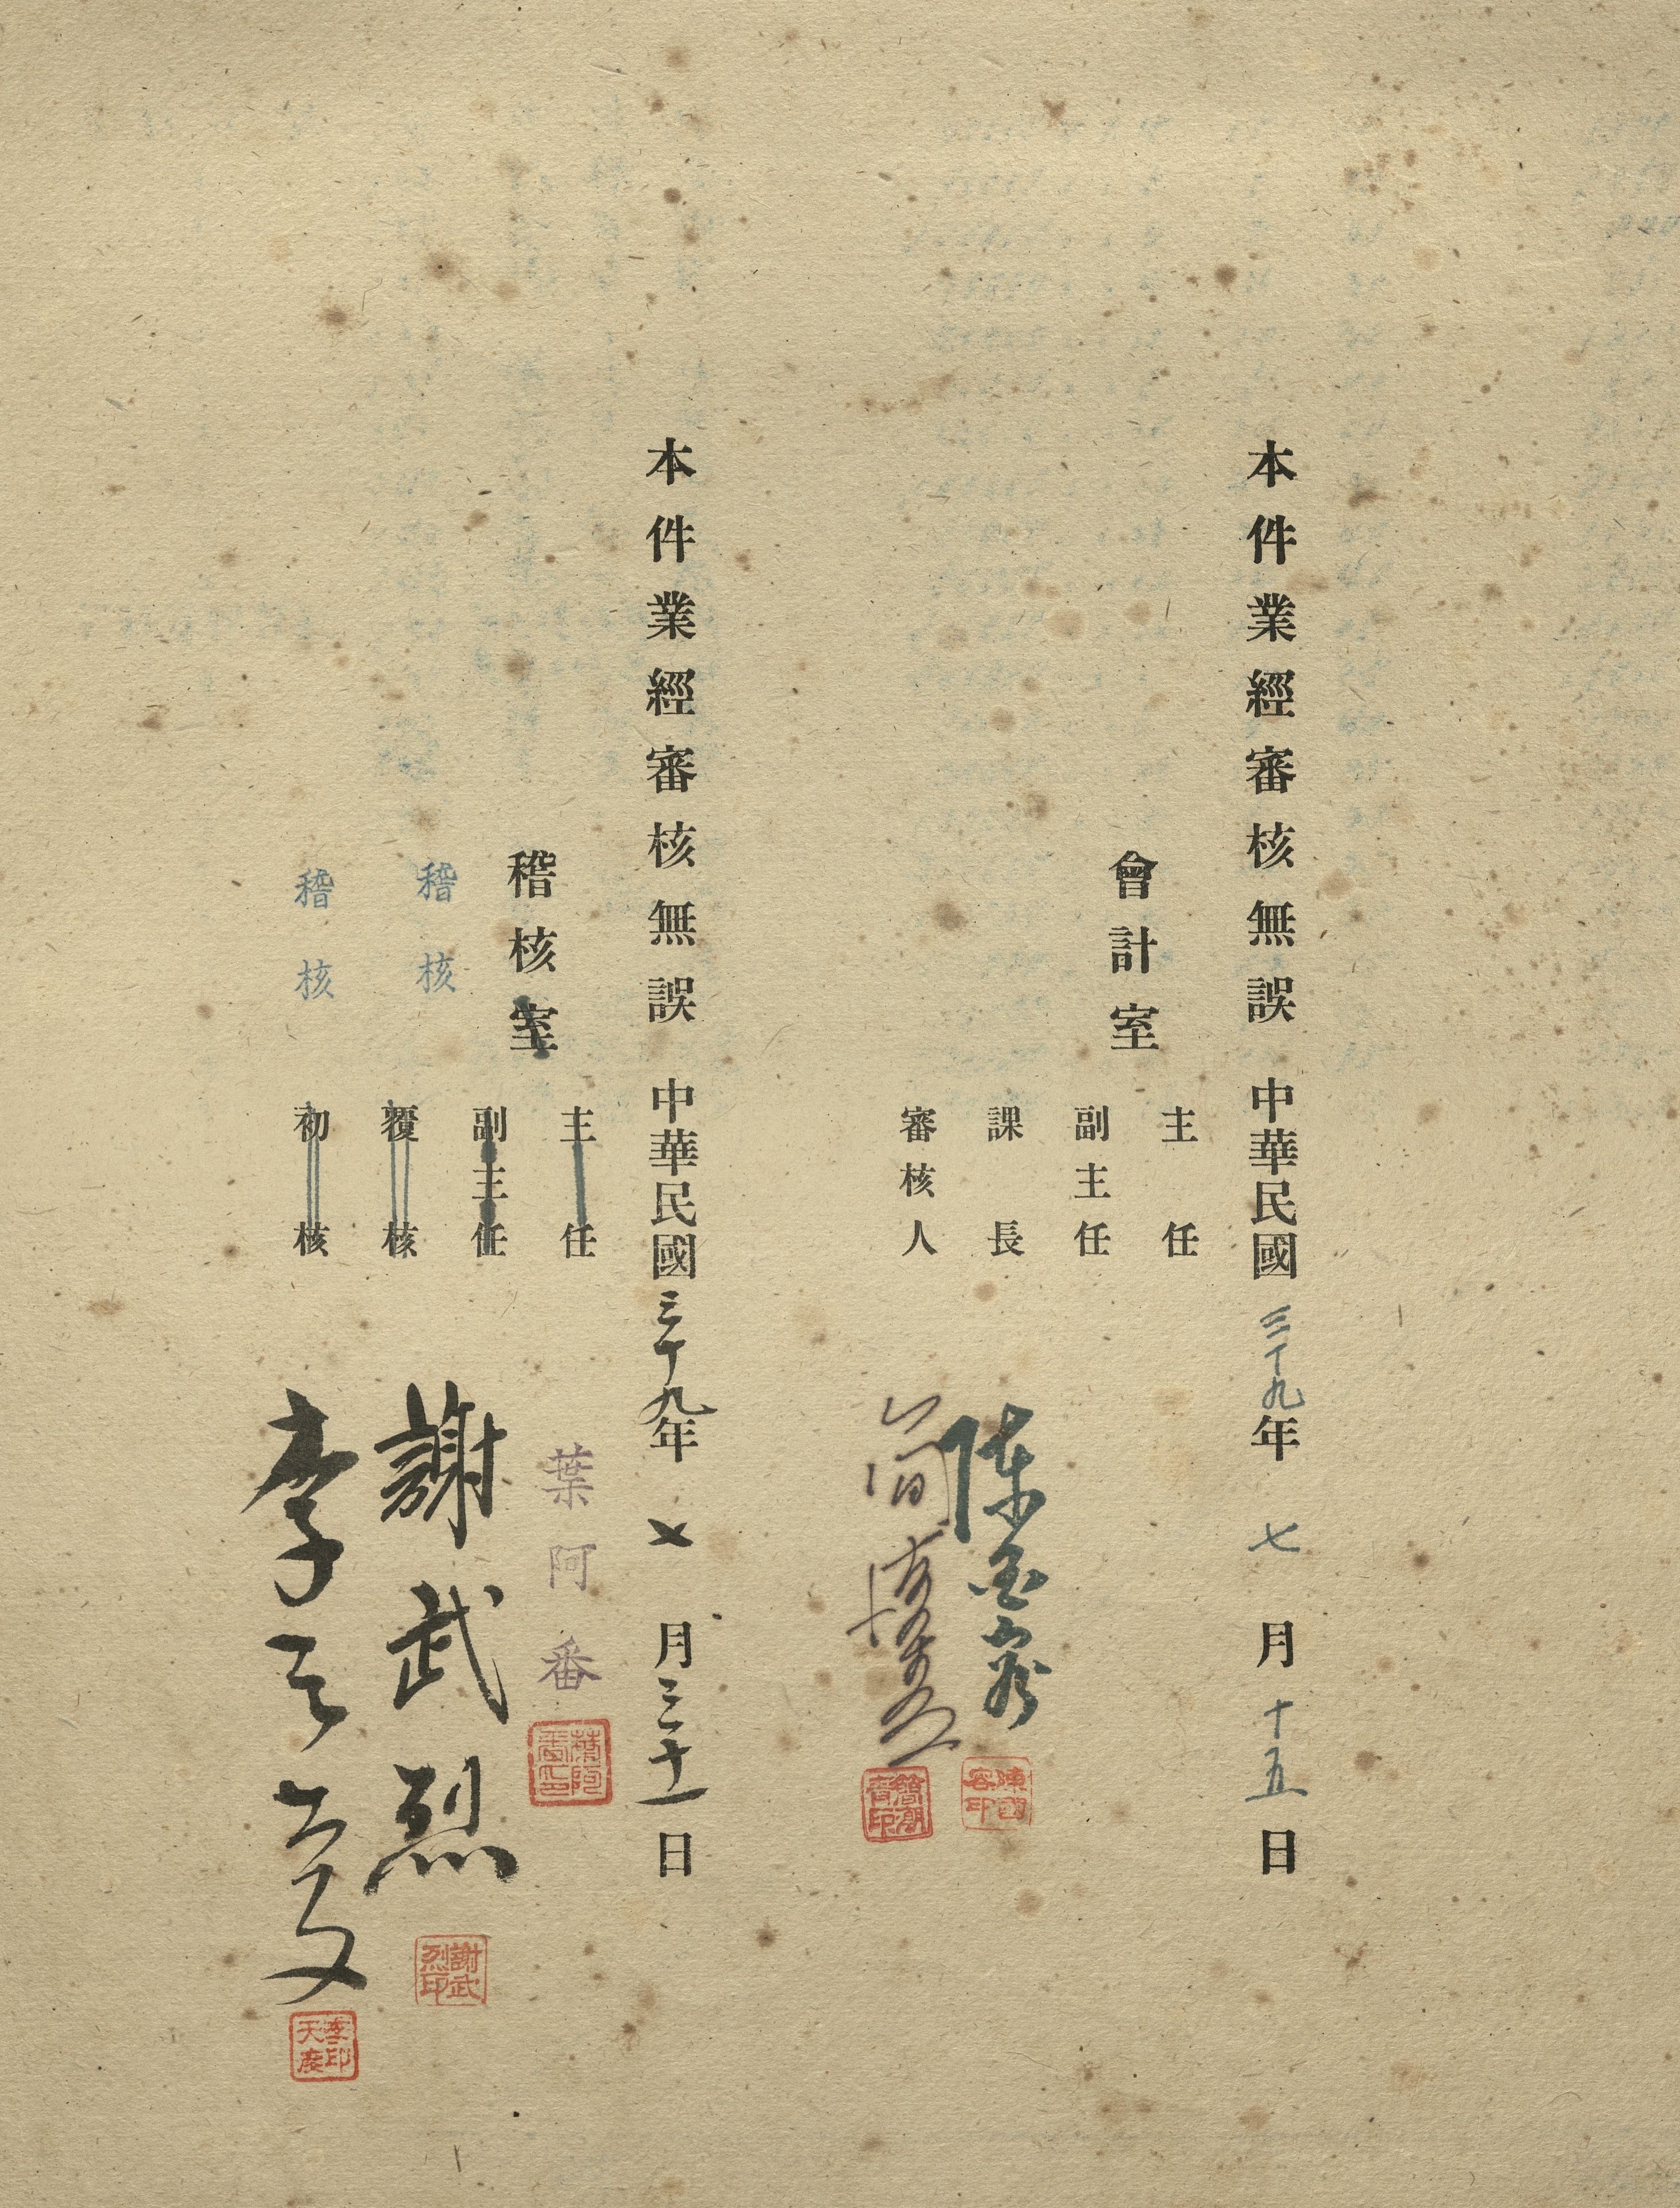 本件業經審核無誤 中華民國三十九年七月十五日
會計室
主任
副主任
課長 陳國容
陳國容印
審核人 簡潮青
簡潮青印
本件業經審核無誤 中華民國三十九年七月三十一日
稽核室
主任 葉阿番
葉阿番印
副主任
稽核 覆核 謝武烈
謝武烈印
稽核 初核 李天慶
李印天慶